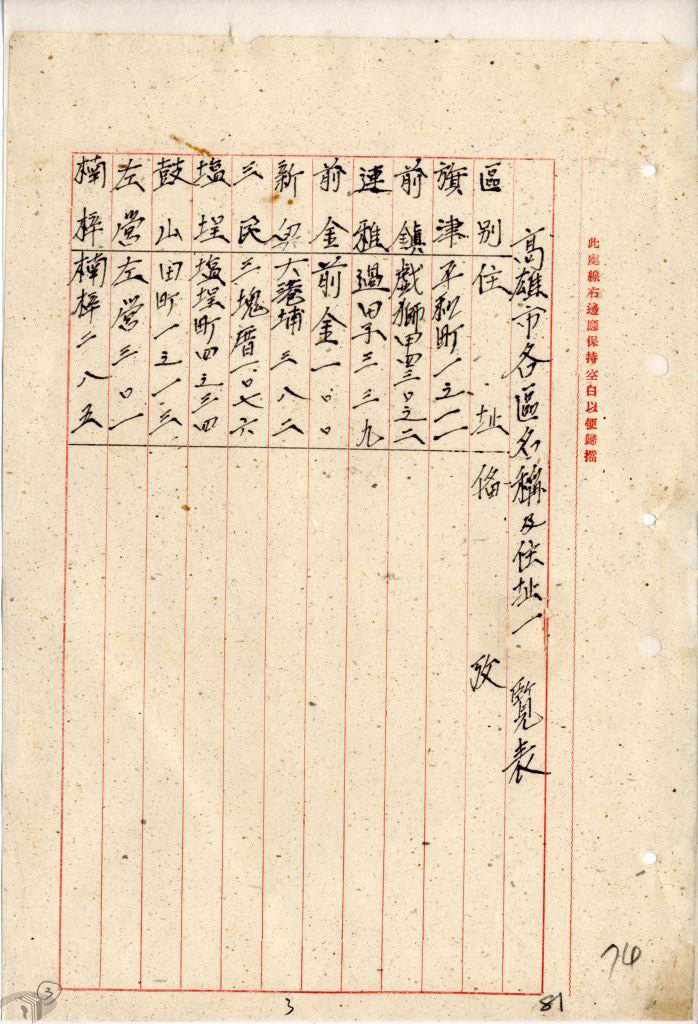 此處線右邊應保持空白以便歸檔
高雄市各區名稱及住址一覽表
區別 住址 俻攷
旗津 平和町一之一一
前鎮 戱獅甲四三〇之二
連雅 過田子三三九
前金 前金一〇〇
新興 大港埔三八二
三民 三塊厝一〇七六
塩埕 塩埕町四之三四
鼓山 田町一之一三
左營 左營三〇一
楠梓 楠梓二八五
74
3
81
3